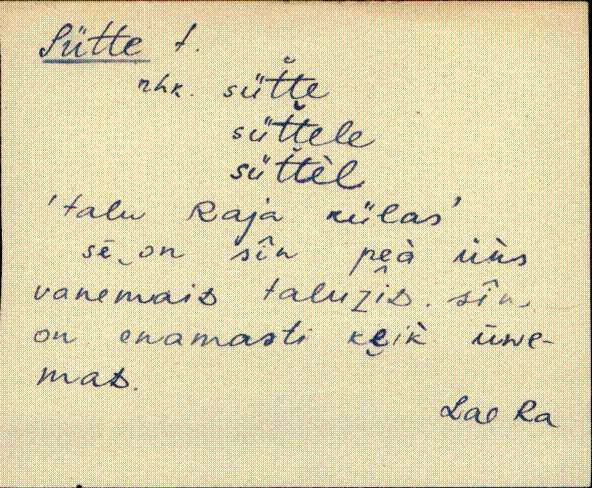 Sütte t.
rhk. sütt̆e
sütt̆ele
sütt̆èl
'talu Raja külas'
sē‿on sîn peà üùs
vanemaiᴅ taluzîᴅ. sîn
on enamasti kẹik̀ üwe-
maᴅ.
Lae Ra